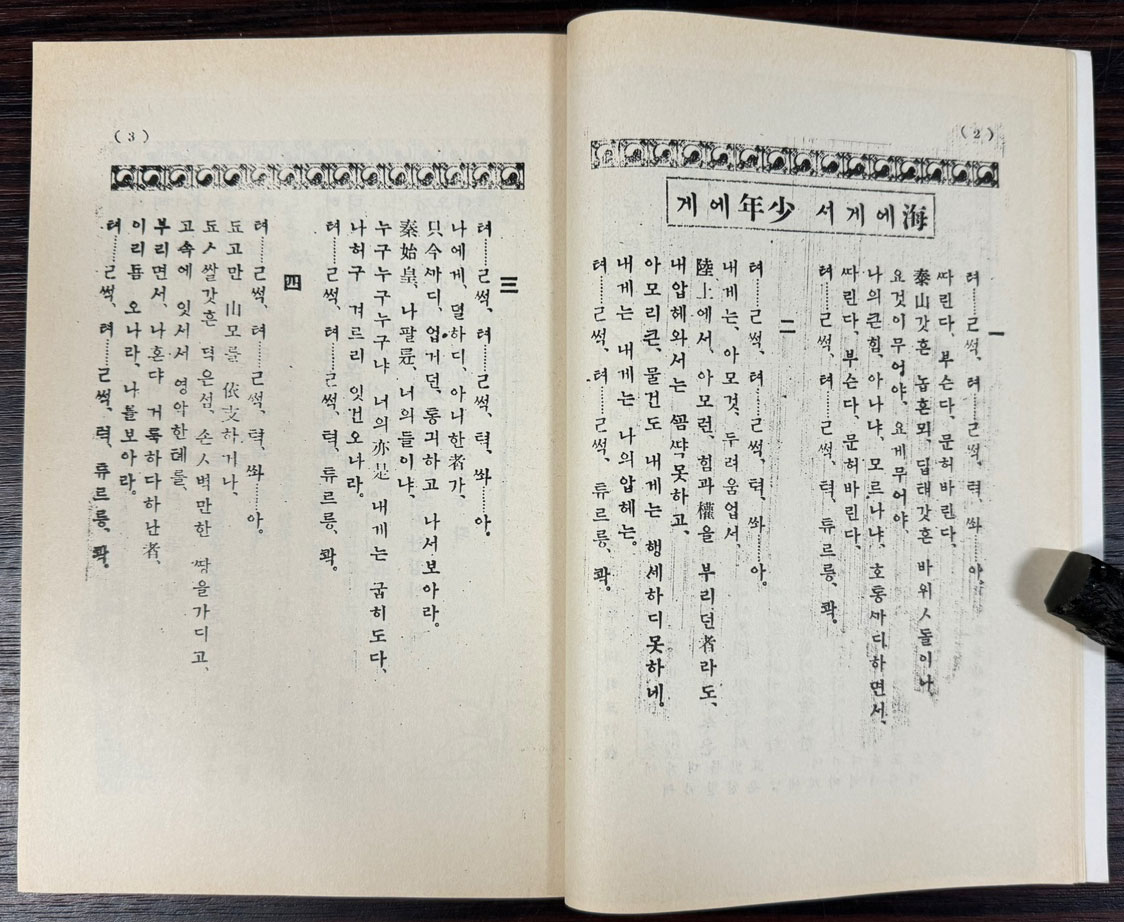 (2)
海에게서 少年에게
一
텨……ㄹ썩, 텨……ㄹ썩, 텩, 쏴……아。
ᄯᅡ린다, 부슨다, 문허바린다,
泰山갓흔 놉흔뫼, 딥태갓흔 바위ㅅ돌이나,
요것이무어야, 요게무어야,
나의큰힘, 아나냐, 모르나냐, 호통ᄭᅡ디하면서,
ᄯᅡ린다, 부슨다, 문허바린다,
텨……ㄹ썩, 텨……ㄹ썩, 텩, 튜르릉, 콱。
二
텨……ㄹ썩, 텨……ㄹ썩, 텩, 쏴……아。
내게는, 아모것, 두려움업서,
陸上에서, 아모런, 힘과權을 부리던者라도,
내압헤와서는 ᄭᅩᆷᄶᅡᆨ못하고,
아모리큰, 물건도 내게는 행세하디못하네。
내게는 내게는 나의압헤는。
텨……ㄹ썩, 텨……ㄹ썩, 튜르릉, 콱。
(3)
三
텨……ㄹ썩, 텨……ㄹ썩, 텩, 쏴……아。
나에게, 뎔하디, 아니한者가,
只今ᄭᅡ디, 업거던, 통긔하고 나서보아라。
秦始皇, 나팔륜, 너의들이냐,
누구누구누구냐 너의亦是 내게는 굽히도다,
나허구 겨르리 잇건오나라。
텨……ㄹ썩, 텨……ㄹ썩, 텩, 튜르릉, 콱。
四
텨……ㄹ썩, 텨……ㄹ썩, 텩, 쏴……아。
됴고만 山모를 依支하거나,
됴ㅅ쌀갓흔 뎍은섬, 손ㅅ벽만한 ᄯᅡᆼ을가디고,
고속에 잇서서 영악한톄를,
부리면서, 나혼댜 거룩하다하난者,
이리둄 오나라, 나를보아라。
텨……ㄹ썩, 텨……ㄹ썩, 텩, 튜르릉, 콱。